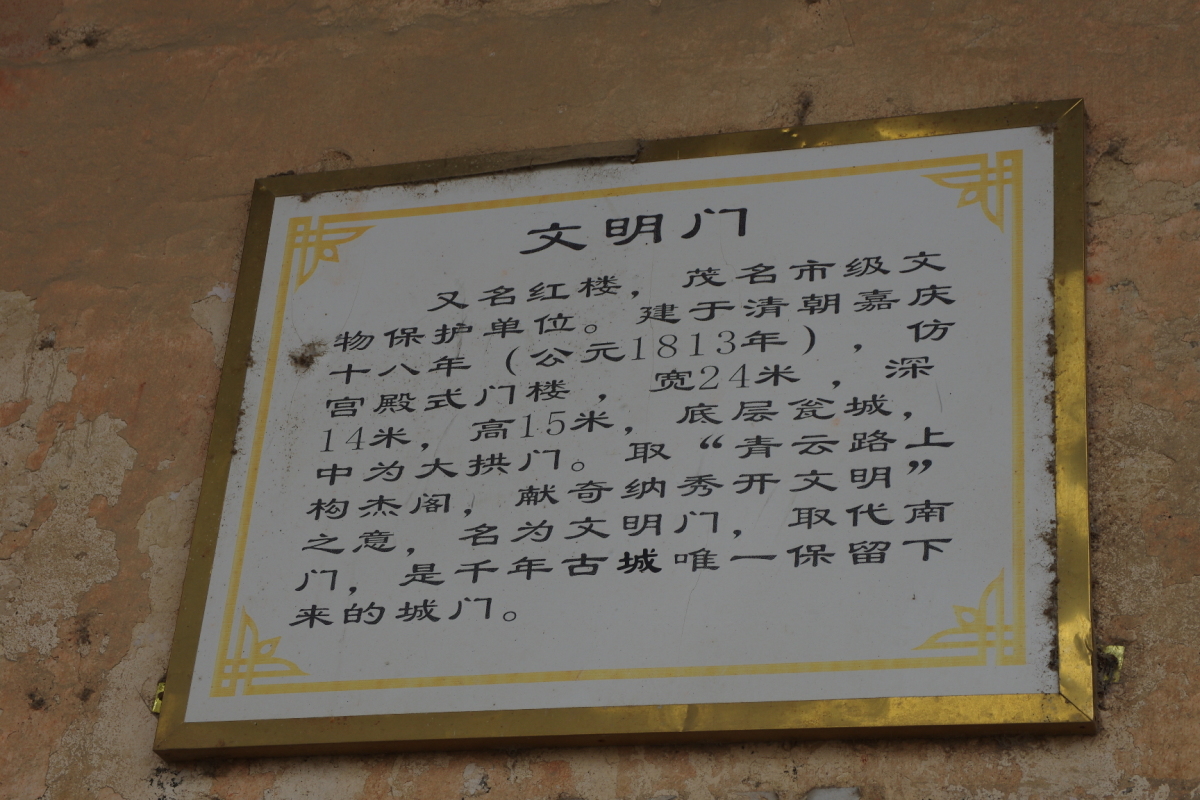 文明门
又名红楼，茂名市级文
物保护单位。建于清朝嘉庆
十八年（公元1813年），仿
宫殿式门楼，宽24米，深
14米，高15米，底层瓮城，
中为大拱门。取“青云路上
构杰阁，献奇纳秀开文明”
之意，名为文明门，取代南
门，是千年古城唯一保留下
来的城门。